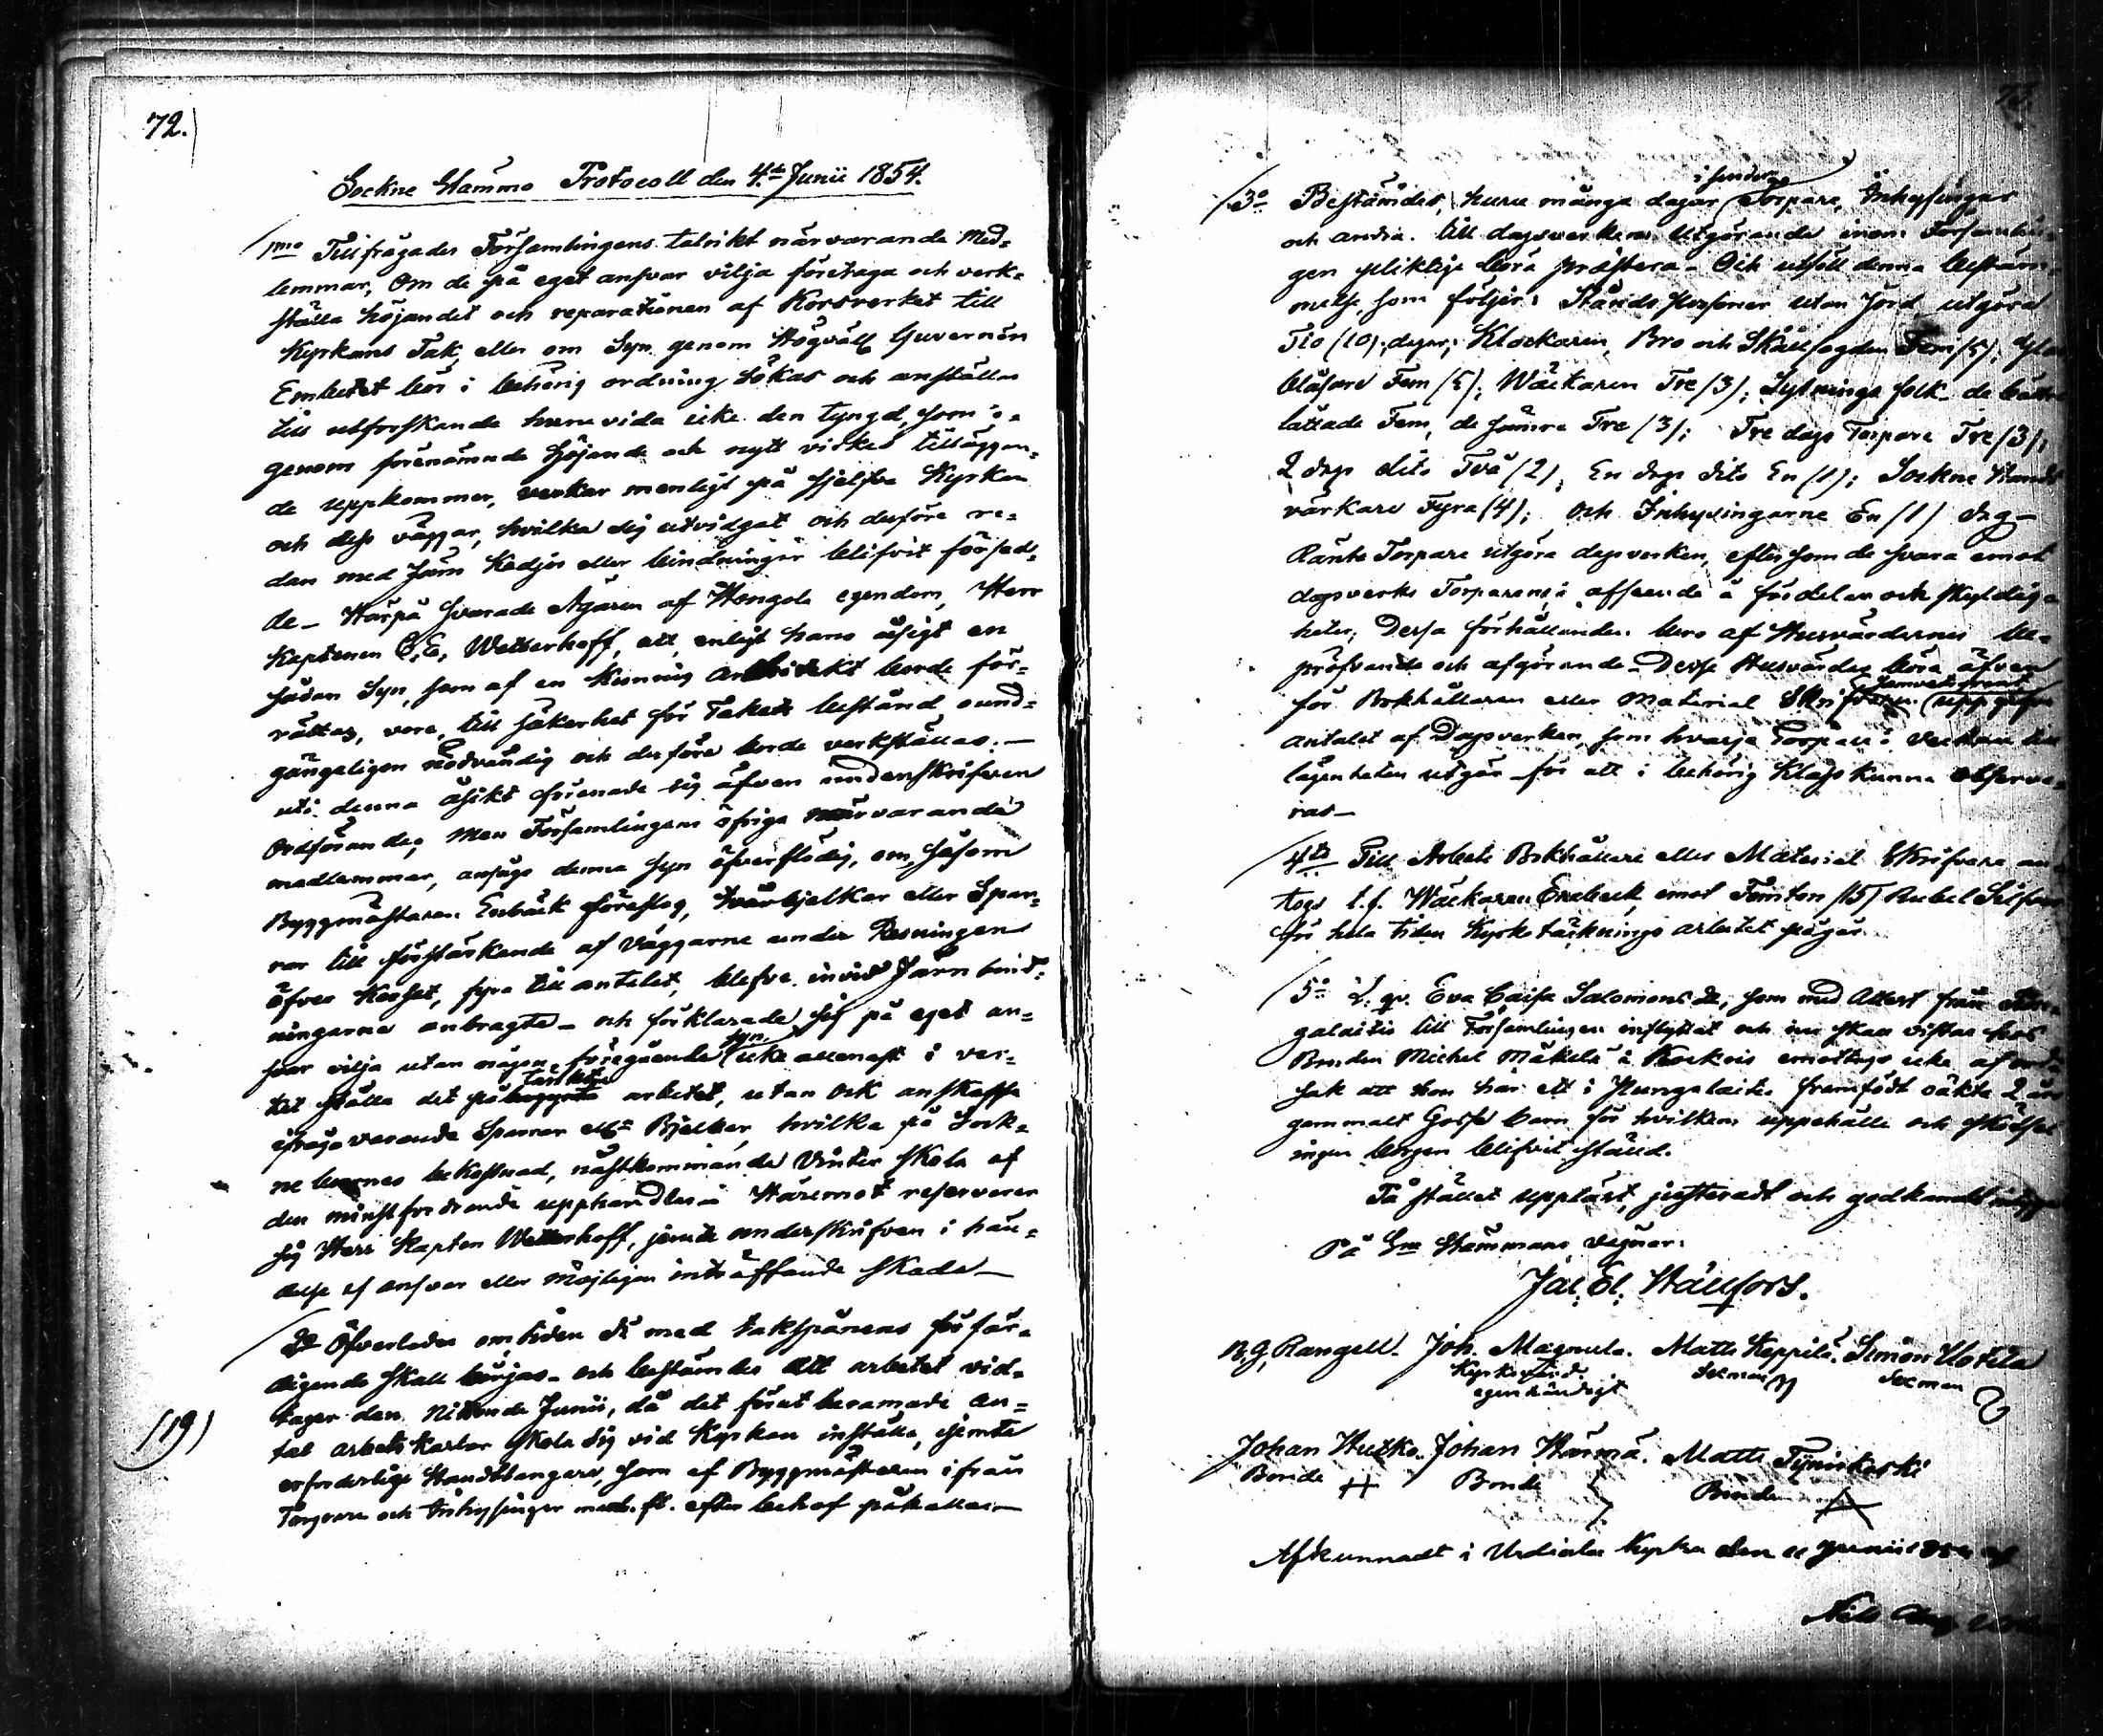 72.
Sockne Stämmo Protocoll den 4.de Junii 1854.
1mo Tillfrågades Församlingens talrikt närvarande Med-
lemmar, Om de på eget ansvar vilja företaga och verk-
ställa höjandet och reparationen af Korsverket till
Kyrkans Tak, eller om Syn genom Högväll. Guvernörs
Embetet bör i behörig ordning sökas och anställas
till utforskande huruvida icke den tyngd, som i-
genom förenämnde höjande och nytt virkes tilläggan-
de uppkommer, verkar menligt på sjelfva Kyrkan
och dess väggar, hvilka sig utvidgat och derföre re-
dan med Jern Kedjor eller bindningar blifvit försed-
de – Härpå svarade Ägaren af Hongola egendom, Herr
Kaptenen C. E. Wetterhoff, att enligt hans åsigt en
sådan Syn, som af en Kunnig Arkitekt borde för-
rättas, vore, till säkerhet för Takets bestånd ound-
gängeligen nödvändig och derföre borde verkställas. –
uti denna åsikt förenade sig äfven undenskrifven
Ordförande; Men Församlingens öfriga närvarande
medlemmar, ansågo denna syn öfverflödig, om, såsom
Byggmästaren Enbäck föreslog, tvärbjelkar eller Spar-
rar till förstärkande af väggarne under Resningen
öfver Korset, fyra till antalet, blefve invid Järn bind-
ningarne anbragte – och förklarade sig på eget an-
svar vilja utan någon föregående syn icke allenast i ver-
ket ställa det påtänkta arbetet, utan ock anskaffa
ifrågavarande Sparrar ellr Bjelkar, hvilka på Sock-
ne boernes bekostnad, nästkommande Vinter skola af
den minstfordrande upphandlas – Häremot reserverar
sig Herr Kapten Wetterhoff, jemte underskrifven i hän-
delse af ansvar eller möjligen inträffande skada –
2o Öfverlades om tiden då med takspånens förfär-
digande skall börjas – och bestämdes att arbetet vid-
tager den Nittonde Junii, då det förut beramade an-
(19)
tal arbetskarlar skola sig vid Kyrkan inställa, jemte
erforderlige Handtlangare, som af Byggmästaren ifrån
Torpare och Inhysingar med. fl. efter behof påkallas –
3o Bestämdes, huru många dagar i sender Torpare, Inhysingar
och andra till dagsverkens utgörande inom Församlin-
gen pliktige böra præstera – Och utföll denna bestäm-
melse som följer: Stånds Personer utan Jord utgöra
Tio (10) dagar; Klockaren, Bro och Skallfogden Fem (5); Glas
blåsare Fem (5); Wäktaren Tre (3); Sytnings folk de bättre
lättade Fem, de sämre Tre (3); Tre dags Torpare Tre (3);
2 dags dito Två (2); En dags dito En (1); Sockne Handt
värkare Fyra (4); och Inhysingarne En (1) dag –
Ränte Torpare utgöra dagsverken, efter som de svara emot
dagsverks Torparena, i afseende å fördelar och skyldig-
heter; Dessa förhållanden bero af Husvärdernes be-
pröfvande och afgörande – Desse Husvärder böra äfven
för Bokhållaren eller Material Skrifvaren uppgifva
antalet af Dagsverken, som hvarje Torpare i veckan till
lägenheten utgör för att i behörig Klass kunna observe-
ras –
4to Till Arbets Bokhållare eller Material Skrifvare an-
togs t. f. Wäckaren Enebeck emot Femton (15) Rubel Silfver
för hela tiden Kyrko täcknings arbetet pågår.
5o L. qv. Eva Caisa Salomons dr, som med Attest från
galaitio till Församlingen inflyttat och nu skall vistas hos
Bonden Michel Mäkelä i Kockois emottogs icke af ord-
sak att hon har ett i Hungalaitio framfödt oäkta 2 års
gammalt Gosse barn för hvilkens uppehälle och skötsel
ingen borgen blifvit ställd.
På stället uppläst, justeradt och godkändt intygar
På Sne Stämmans vägnar:
Jac. El. Hällfors.
N. G. Rangell. Joh. Magnula. Matts Keppilä. Simon Uotila
Kyrkovärd. Sexman Sexman
egenhändigt
Johan Hutko. Johan Härmä. Matts Tynikoski
Bonde Bonde Bonde
Afkunnadt i Urdiala Kyrka den 11 Junii 1854 af